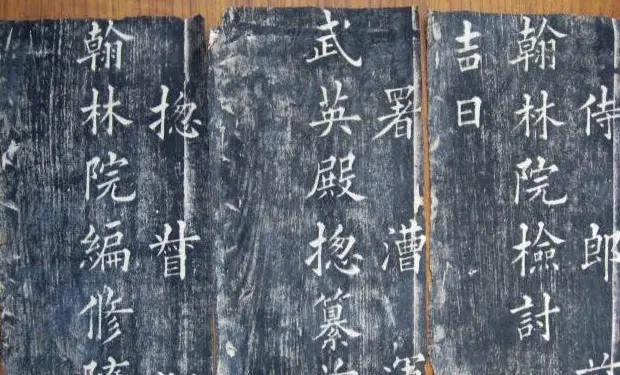 侍郎
翰林院檢討
吉日
署漕運
武英殿揔纂
揔督
翰林院編修